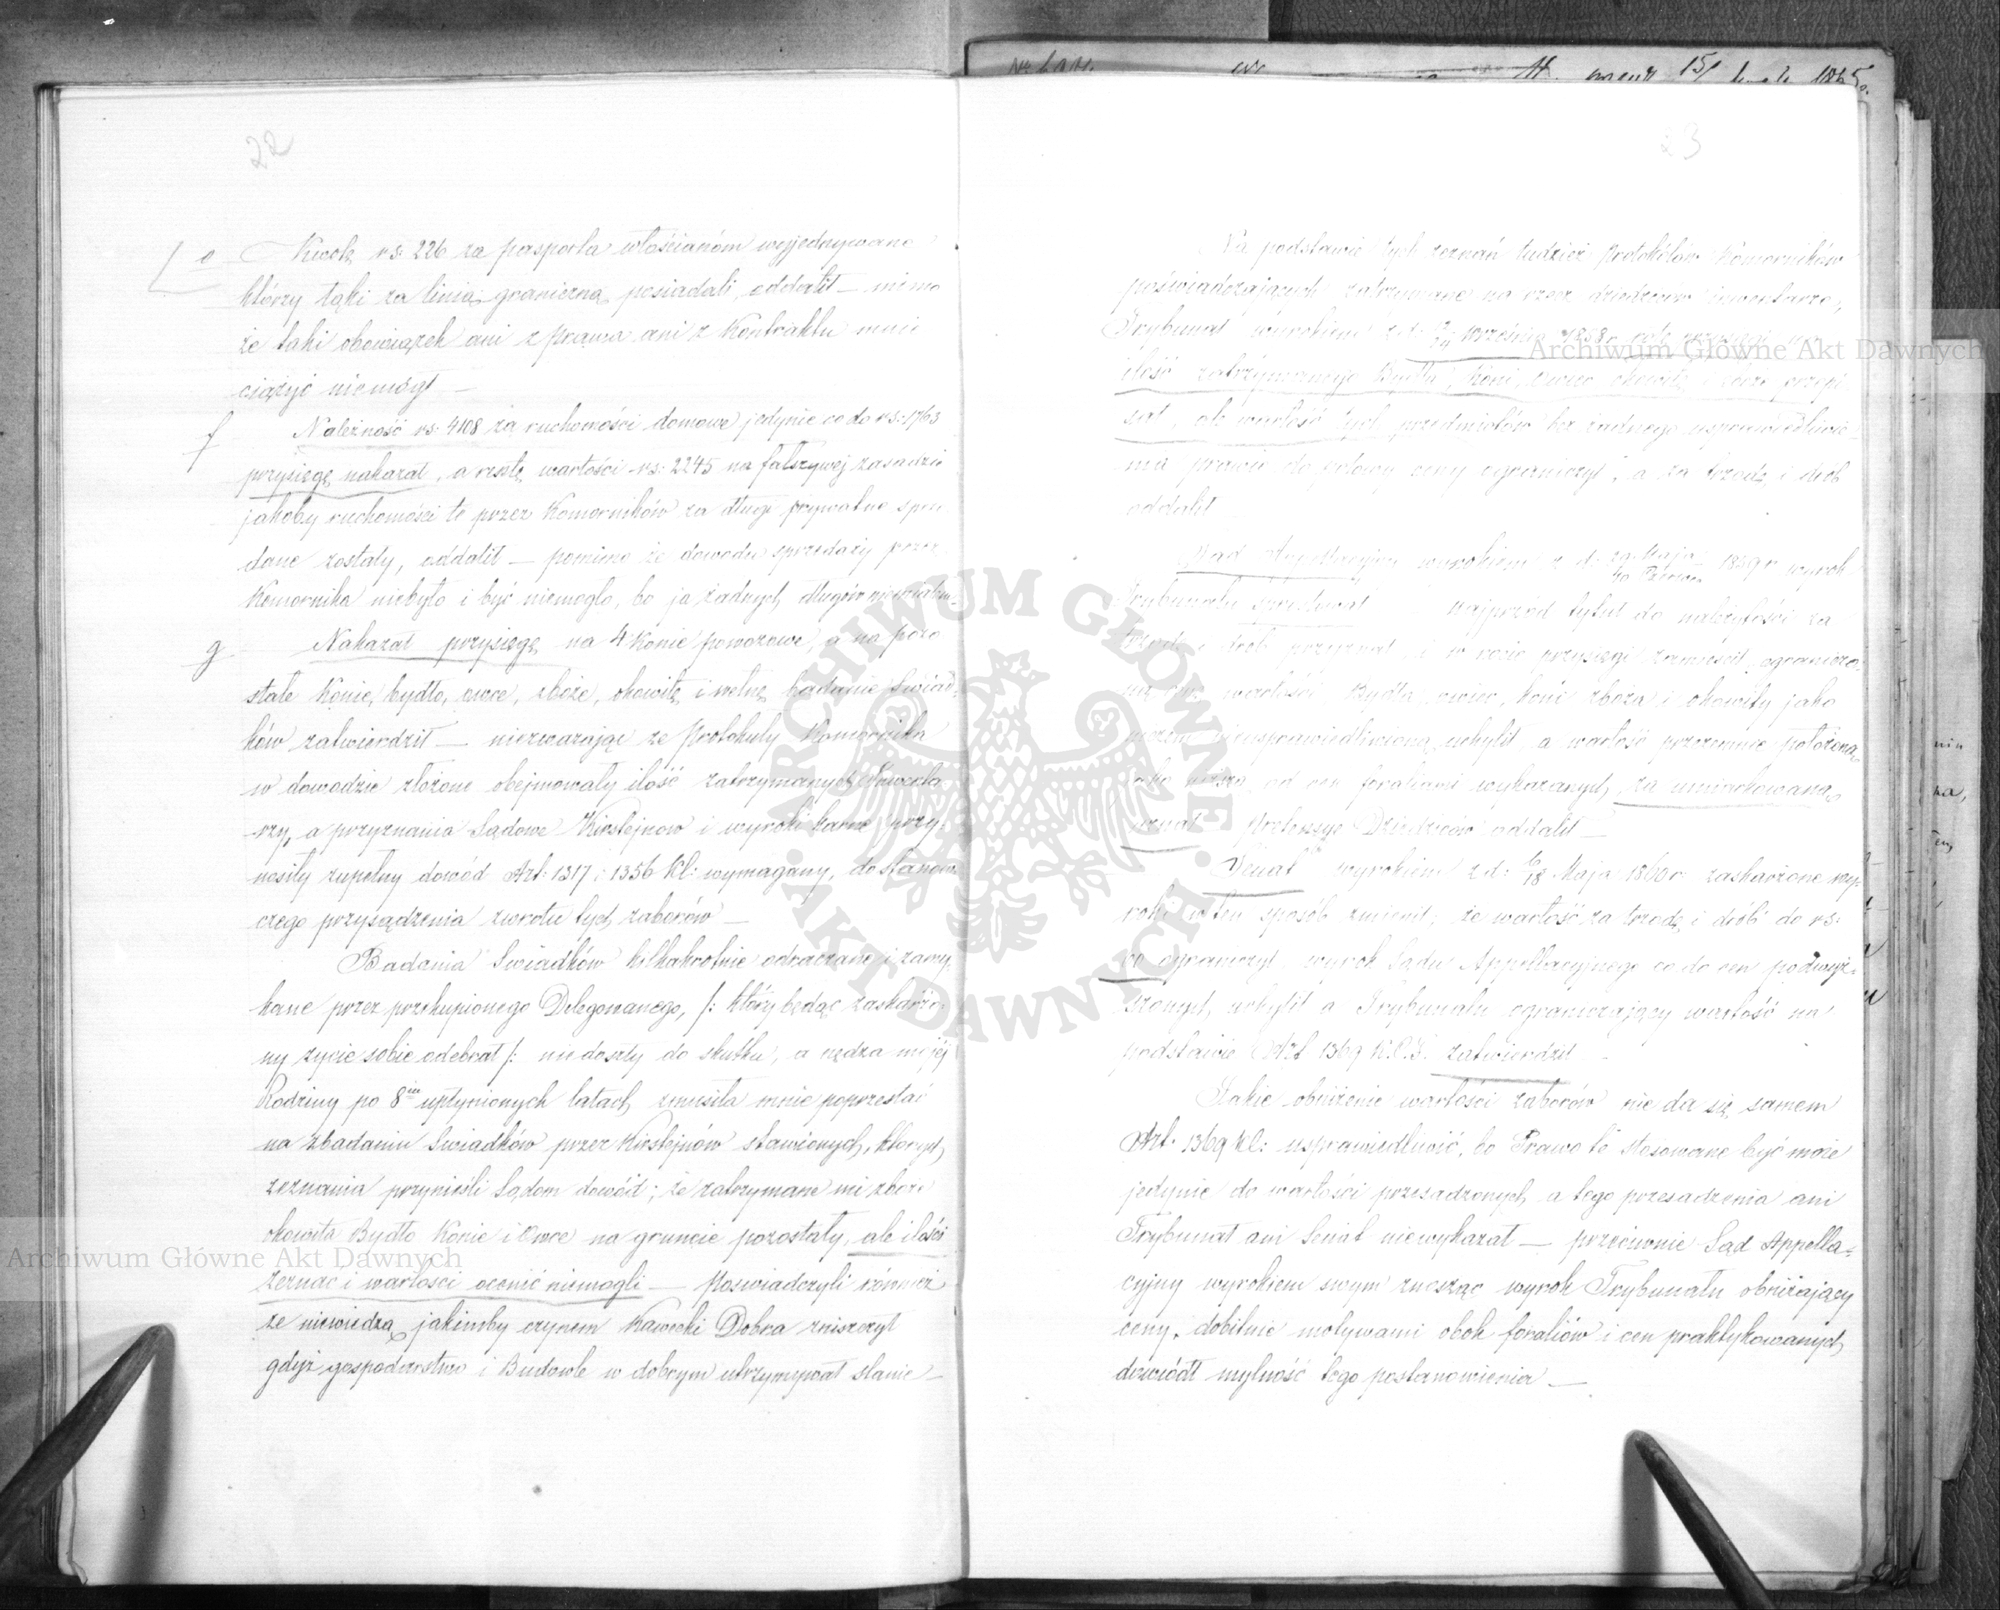 22
e Kwotę rs: 226 za pasporta włościanom wyjednywane
którzy łąki za linią graniczną posiadali, oddalił — mimo
że taki obowiązek ani z prawa ani z Kontraktu mnie
ciążyć niemógł —
f Należność rs: 4108 za ruchomości domowe jedynie co do rs: 1763
przysięgę nakazał, a resztę wartości rs: 2245 na fałszywej zasadzie
jakoby ruchomości te przez Komorników za długi prywatne sprze
dane zostały, oddalił — pomimo że dowodu sprzedaży przez
Komornika niebyło i być niemogło, bo ja żadnych długów niemiałem
g Nakazał przysięgę na 4 Konie powozowe, a na pozo
stałe Konie, bydło, owce, zboże, okowitę i wełnę badanie świad-
ków zatwierdził — niezważając że Protokuły Komornika
w dowodzie złożone obejmowały ilość zatrzymanych Inwenta
rzy, a przyznania Sądowe Kirstejnow i wyroki karne przy-
nosiły zupełny dowód Art: 1317 i 1356 Kl: wymagany, do stanow
czego przysądzenia zwrotu tych zaborów —
Badania Świadków kilkakrotnie odraczane i zamy-
kane przez przekupionego Delegowanego, /: który będąc zaskarżo-
ny życie sobie odebrał /: niedoszły do skutku, a nędza mojéj
Rodziny po 8iu upłynionych latach, zmusiła mnie poprzestać
na zbadaniu Świadków przez Kirstejnów stawionych, których
zeznania przynieśli Sądom dowód; że zatrzymane mi zboże
okowita Bydło Konie i Owce na gruncie pozostały, ale ilości
zeznać i wartości ocenić niemogli — Poświadczyli również
że niewiedzą jakimby czynem Kawecki Dobra zniszczył
gdyż gospodarstwo i Budowle w dobrym utrzymywał stanie —
23
Na podstawie tych zeznań tudzież Protokółów Komorników
poświadczających zatrzymane na rzecz dziedziców inwentarze,
Trybunał wyrokiem z d: Września 1858 r. rotę przysięgi na
ilość zatrzymanego Bydła, Koni, Owiec okowity i zboża przepi
sał, ale wartość tych przedmiotów bez żadnego usprawiedliwie-
nia prawie do połowy ceny ograniczył, a za trzodę i drób
oddalił
Sąd Appellacyjny wyrokiem z d: Maja 1859 r wyrok
Trybunału — najprzód tytuł do należytości za
trzodę i drób przyznał, i w rocie przysięgi zamieścił, ogranicza-
wartości Bydła, owiec, koni zboża i okowity jako
niczem nieusprawiedliwioną uchylił, a wartość przezemnie położoną
jako niższą od cen foraliami wykazanych, za umiarkowaną
uznał — Pretensye Dziedziców oddalił —
Senat wyrokiem z d: 6/18 Maja 1860 r: zaskarżone wy-
roki w ten sposób zmienił, że wartość za trzodę i drób do rs:
60 ograniczył wyrok Sądu Appellacyjnego co do cen podwyż-
szonych, uchylił a Trybunału ograniczający wartość na
podstawie Art 1369 K.C.P. zatwierdził —
Takie obniżenie wartości zaborów nie da się samem
Art. 1369 Kl: usprawiedliwić, bo Prawo to stosowane być może
jedynie do wartości przesadzonych, a tego przesadzenia ani
Trybunał ani Senat niewykazał — przeciwnie Sąd Appella-
cyjny wyrokiem swym znosząc wyrok Trybunału obniżający
ceny, dobitnie motywami obok foraliów i cen praktykowanych,
dowiódł mylność tego postanowienia —
ARCHIWUM GŁÓWNE AKT DAWNYCH
Archiwum Główne Akt Dawnych
Archiwum Główne Akt Dawnych